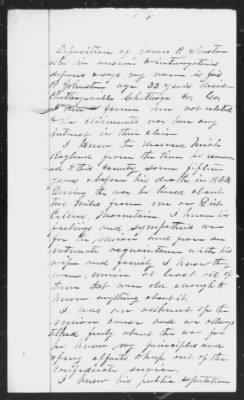 Deposition of James P. Johnston
who in answer to interrogatories
deposes & says my name is Jas
P. Johnston age 33 years reside
Chattoogaville Chattooga Co. Ga.
I am a farmer am not related
to the claimants nor have any
interest in their claim
I knew the deceased
Ragland from the time he removed
to this county some fifteen
years before his death in 1864
During the war he lived about
two miles from me on Dirt
Cellar Mountain I knew his
feelings and sympathies were
for the union and from an
intimate association with his
wife and family I know they
were union at least all of
them that were old enough to
know anything about it.
I was an adherent of the
union cause and we always
talked freely about the war for
he knew my principles and
of my efforts to keep out of the
confederate service.
I knew his public reputation